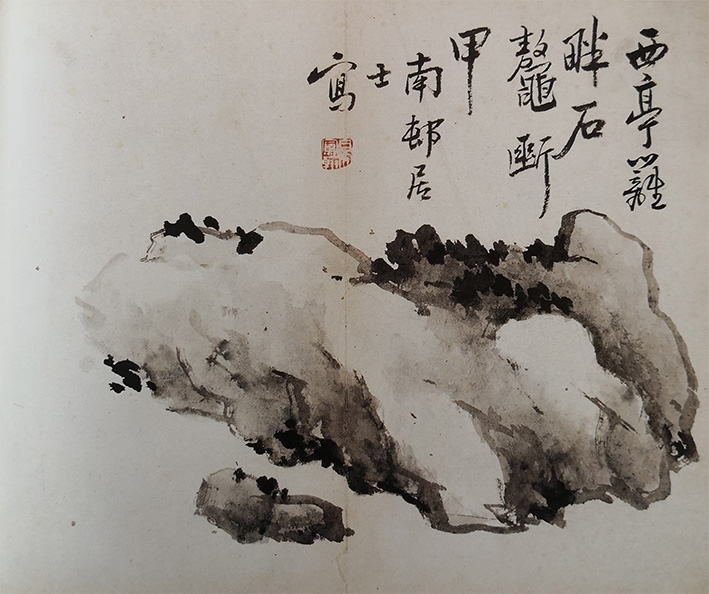 西亭籬
畔石
鼇斷
甲
南邨居
士
寫